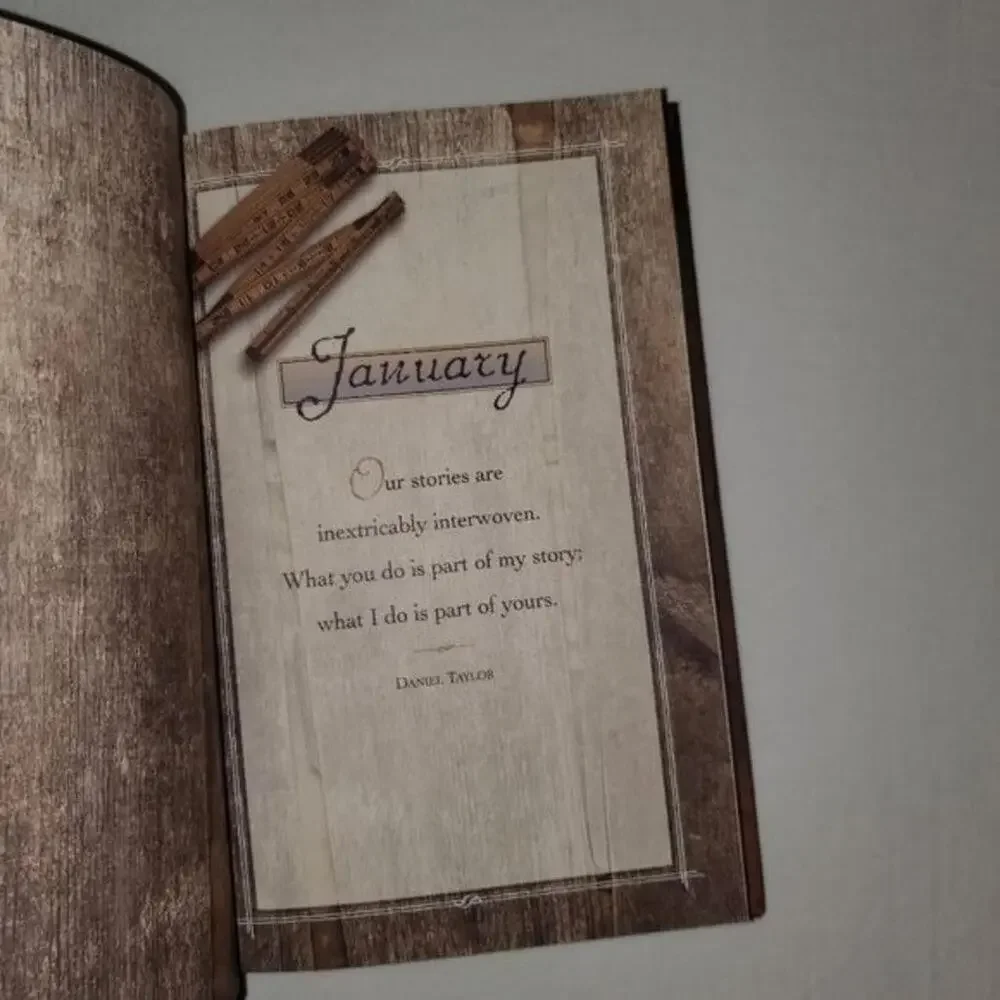 January
Our stories are
inextricably interwoven.
What you do is part of my story;
what I do is part of yours.
Daniel Taylor